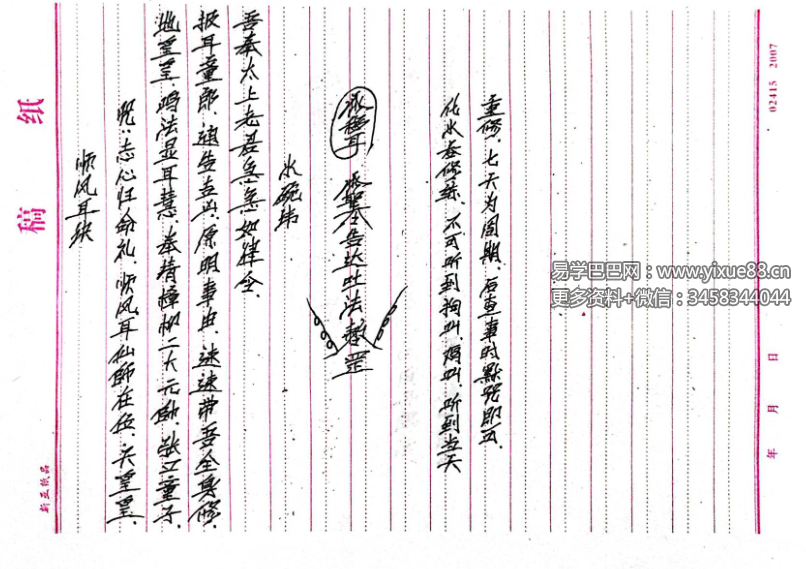 稿 纸
顺风耳决
咒:志心归命礼、顺风耳仙師在位、天罡罡、
地罡罡、鸣法显耳慧、奉精樟柳二大元帥、張立童子、
报耳童郎、通告吉凶、原明事由、速速带吾全身修、
吾奉太上老君急急如律令.
水碗讳
告达吐法 罡
化水吞修练、不可听到狗叫、鸡叫、听到当天
重修、七天为周期、后查事时默 即可、
新亚纸品
02415 2007
年 月 日
易学巴巴网:www.yixue88.cn
更多资料+微信:3458344044